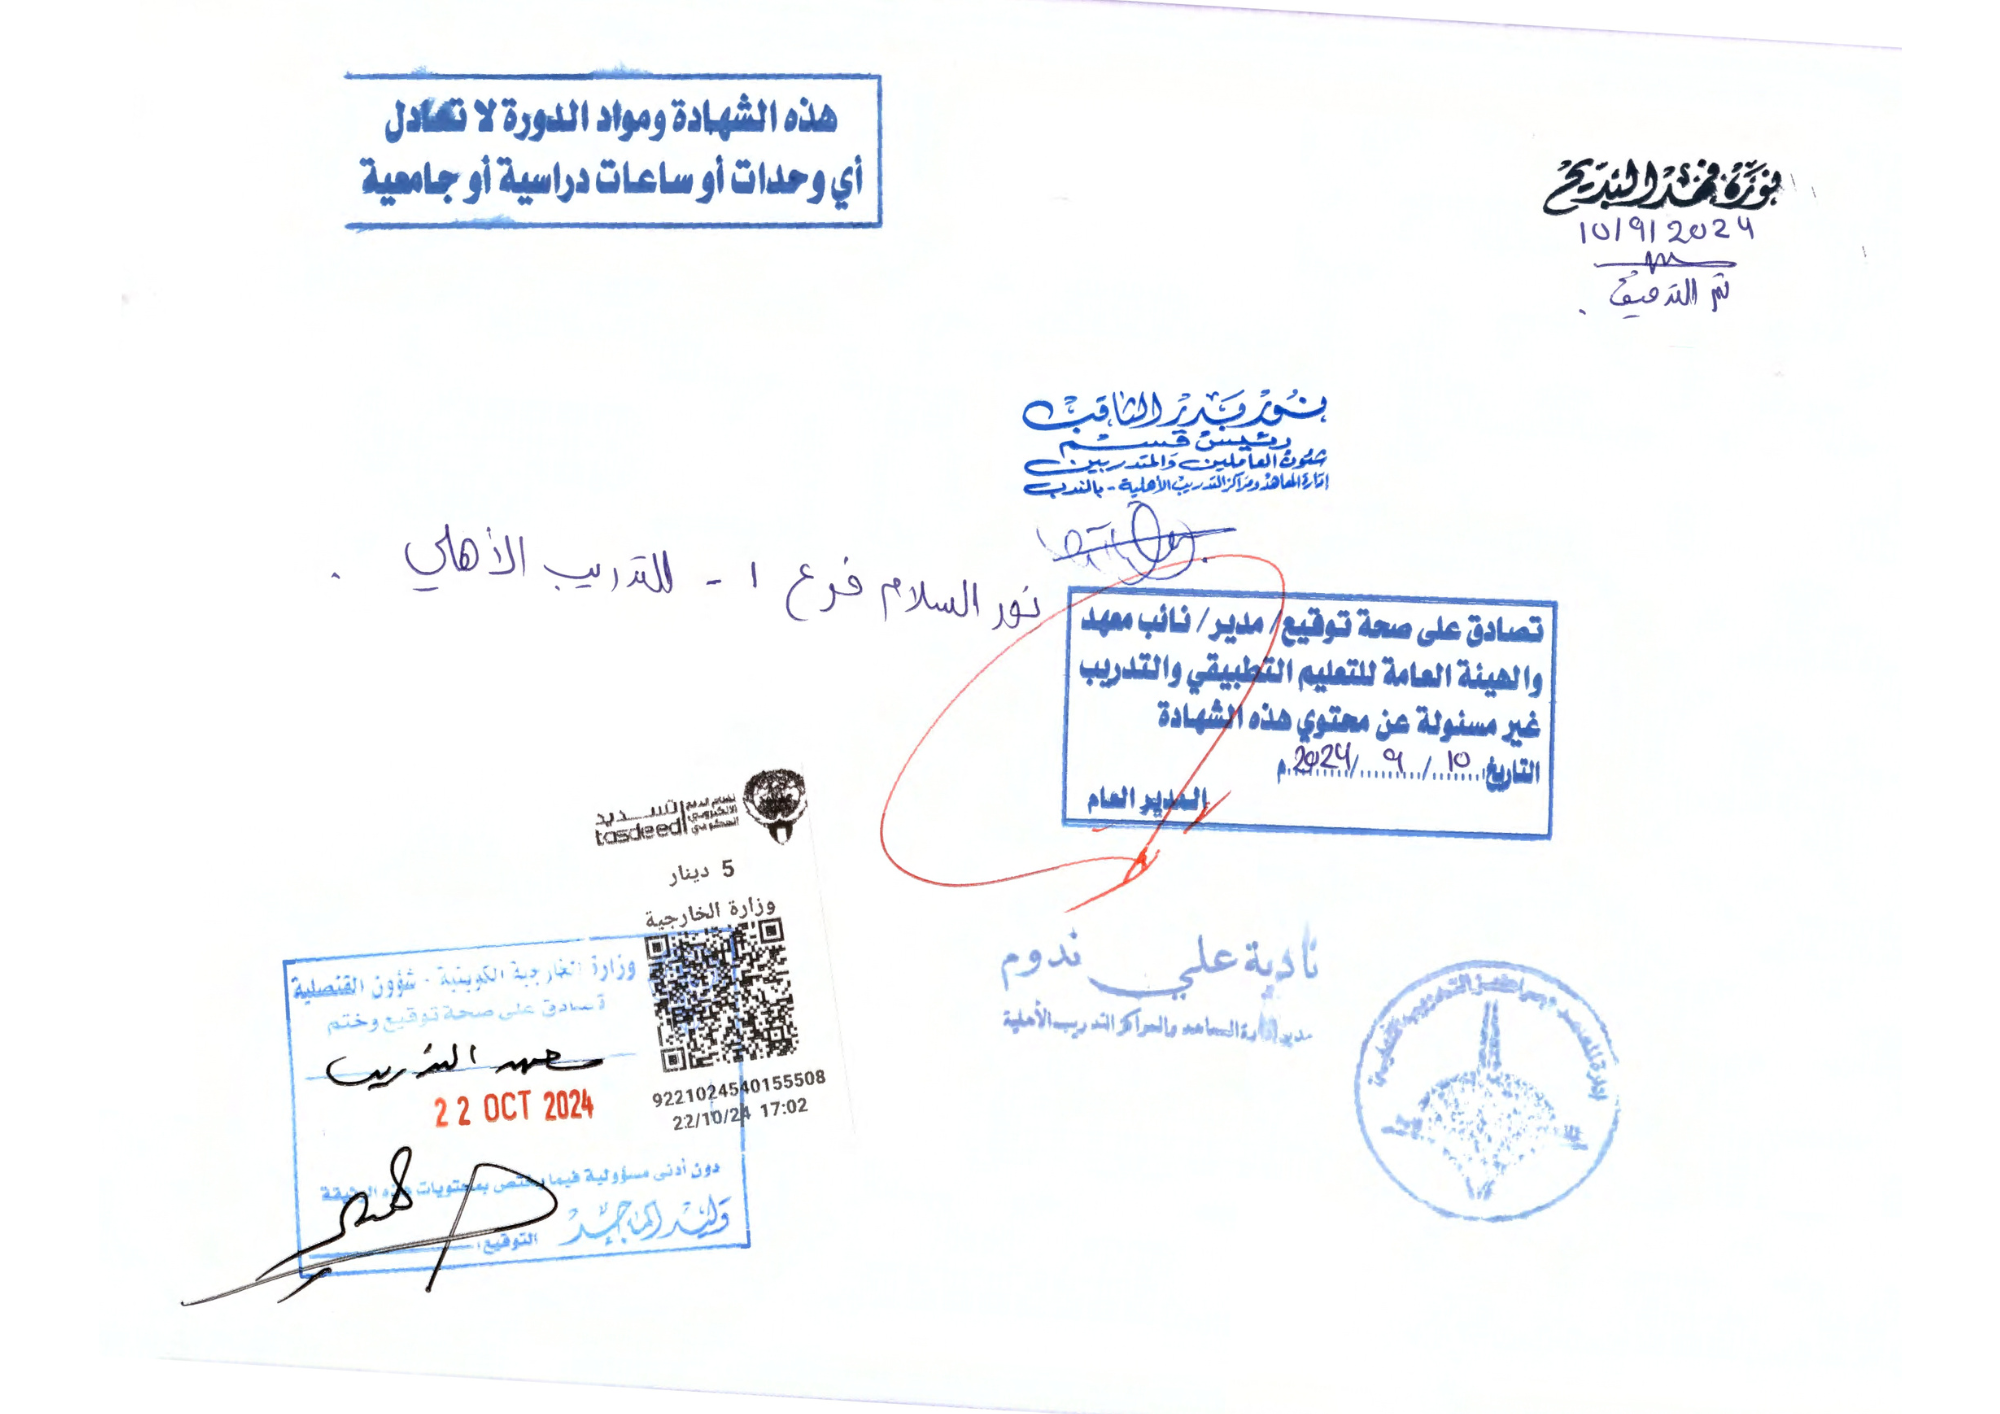 هذه الشهادة ومواد الدورة لا تعادل
أي وحدات أو ساعات دراسية أو جامعية
نورة فهد البديح
10/9/2024
تم التدقيق.
نور بدر الثاقب
رئيس قسم
شئون العاملين والمتدربين
إدارة المعاهد ومراكز التدريب الأهلية - بالندب
نور السلام فرع 1 - للتدريب الأهلي .
تصادق على صحة توقيع/ مدير/ نائب معهد
والهيئة العامة للتعليم التطبيقي والتدريب
غير مسئولة عن محتوي هذه الشهادة
التاريخ: 10 / 9 / 2024م
المدير العام
نادية علي ندوم
مدير إدارة المعاهد والمراكز التدريب الأهلية
تسديد
tasdeed
نظام الدفع
الالكتروني
الحكومي
5 دينار
وزارة الخارجية
9221024540155508
22/10/24 17:02
وزارة الخارجية الكويتية - شؤون القنصلية
تصادق على صحة توقيع وختم
معهد التدريب
22 OCT 2024
دون أدنى مسؤولية فيما يختص بمحتويات هذه الوثيقة
وليد الماجد
التوقيع: